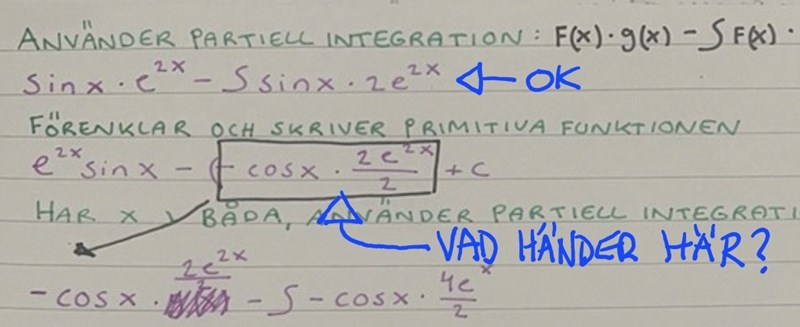 ANVÄNDER PARTIELL INTEGRATION: F(x)·g(x) - ∫ F(x)·
sinx·e^2x - ∫ sinx·2e^2x ← OK
FÖRENKLAR OCH SKRIVER PRIMITIVA FUNKTIONEN
e^2x sinx - (- cosx · 2e^2x/2 + C
HAR X I BÅDA, ANVÄNDER PARTIELL INTEGRATI
VAD HÄNDER HÄR?
-cosx · 2e^2x/2 - ∫ -cosx · 4e^x/2